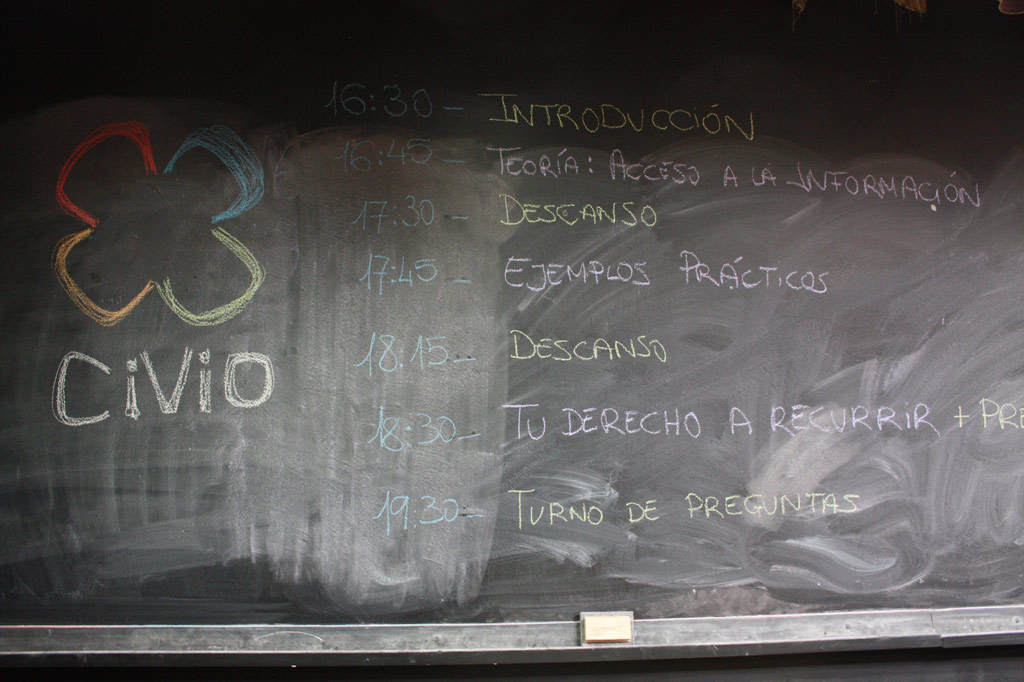 CiViO
16:30 - INTRODUCCIÓN
16:45 - TEORÍA: ACCESO A LA INFORMACIÓN
17:30 - DESCANSO
17:45 - EJEMPLOS PRÁCTICOS
18.15 - DESCANSO
18:30 - TU DERECHO A RECURRIR + PRE
19:30 - TURNO DE PREGUNTAS